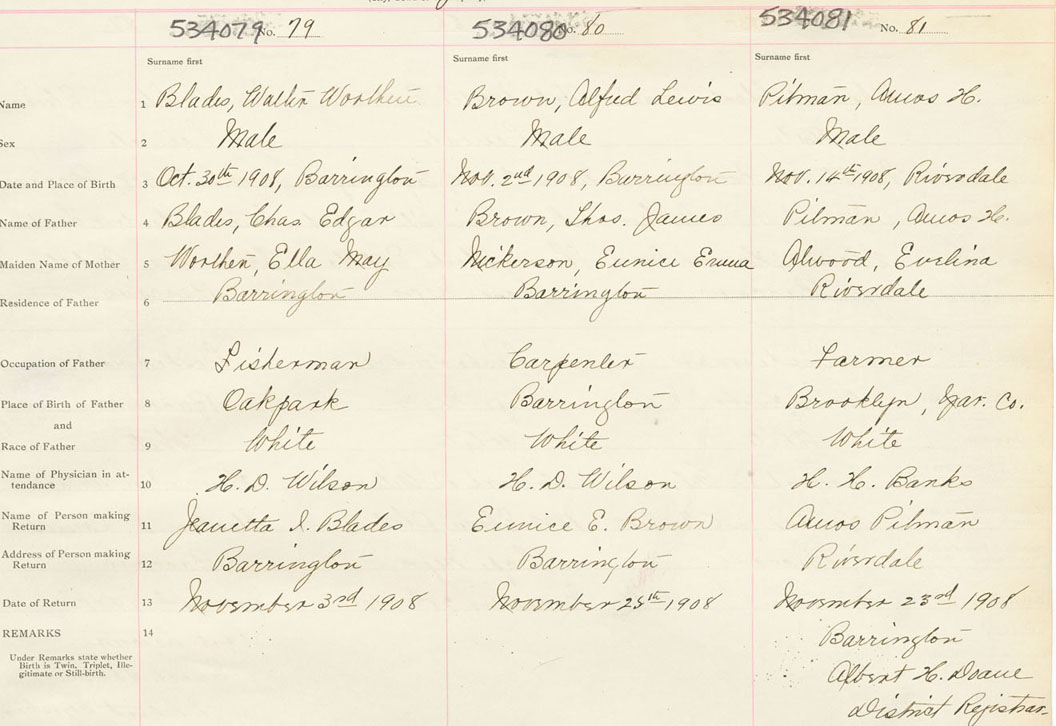 534079 No. 79 534080 No. 80 534081 No. 81
Surname first Surname first Surname first
Name 1 Blades, Walter Worthen Brown, Alfred Lewis Pitman, Amos H.
Sex 2 Male Male Male
Date and Place of Birth 3 Oct. 30th 1908, Barrington Nov. 2nd 1908, Barrington Nov. 14th 1908, Riverdale
Name of Father 4 Blades, Chas. Edgar Brown, Thos. James Pitman, Amos H.
Maiden Name of Mother 5 Worthen, Ella May Nickerson, Eunice Emma Atwood, Evelina
Residence of Father 6 Barrington Barrington Riverdale
Occupation of Father 7 Fisherman Carpenter Farmer
Place of Birth of Father 8 Oakpark Barrington Brooklyn, Yar. Co.
and
Race of Father 9 White White White
Name of Physician in at-
tendance 10 H. D. Wilson H. D. Wilson H. H. Banks
Name of Person making
Return 11 Jeanetta I. Blades Eunice E. Brown Amos Pitman
Address of Person making
Return 12 Barrington Barrington Riverdale
Date of Return 13 November 3rd 1908 November 25th 1908 November 23rd 1908
REMARKS 14
Barrington
Under Remarks state whether
Birth is Twin, Triplet, Ille-
gitimate or Still-birth.
Albert H. Doane
District Registrar.